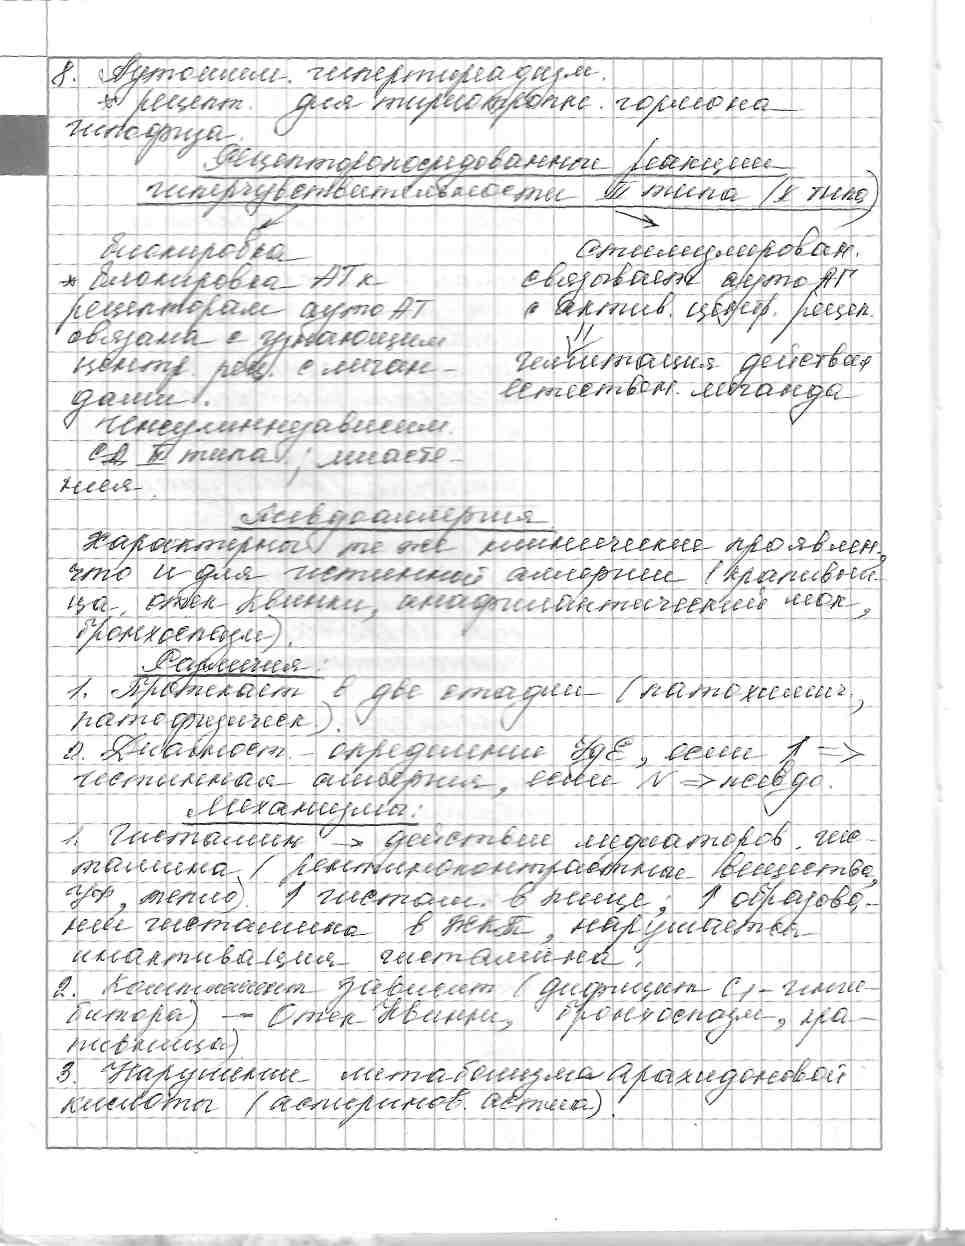 8. Аутоимм. гипертиреодизм.
* рецепт. для тиреотропн. гормона
гипофиза.
Рецепторопосредованной реакции
гиперчувствительности II типа (V типа)
блокировка
* блокировка АТ к
рецепторам ауто АТ
связана с узнающим
центр. рец. с лиган-
дами.
Инсулиннезависим.
СД II типа; миасте-
ния.
стимулирован.
связывает ауто АТ
с актив. центр. рецеп.
имитация действия
естествен. лиганда
Псевдоаллергия
Характерны те же клинические проявлен.,
что и для истинной аллергии (крапивни-
ца, отек Квинки, анафилактический шок,
бронхоспазм).
Различия:
1. Протекает в две стадии (патохимич,
патофизическ.)
2. Диагност. - определение IgE, если ↑ =>
истинная аллергия, если N => псевдо.
Механизмы:
1. Гистамин → действие медиаторов гис-
тамина (рентгеноконтрастные вещества,
уф, тепло). ↑ гистам. в пище; ↑ образова-
ние гистамина в ЖКТ, нарушается
инактивация гистамина.
2. Комплемент зависит (дифицит С1 - инги-
битора) - Отек Квинки, бронхоспазм, кра-
пивница)
3. Нарушение метаболизма Арахидоновой
кислоты (аспиринов. астма).